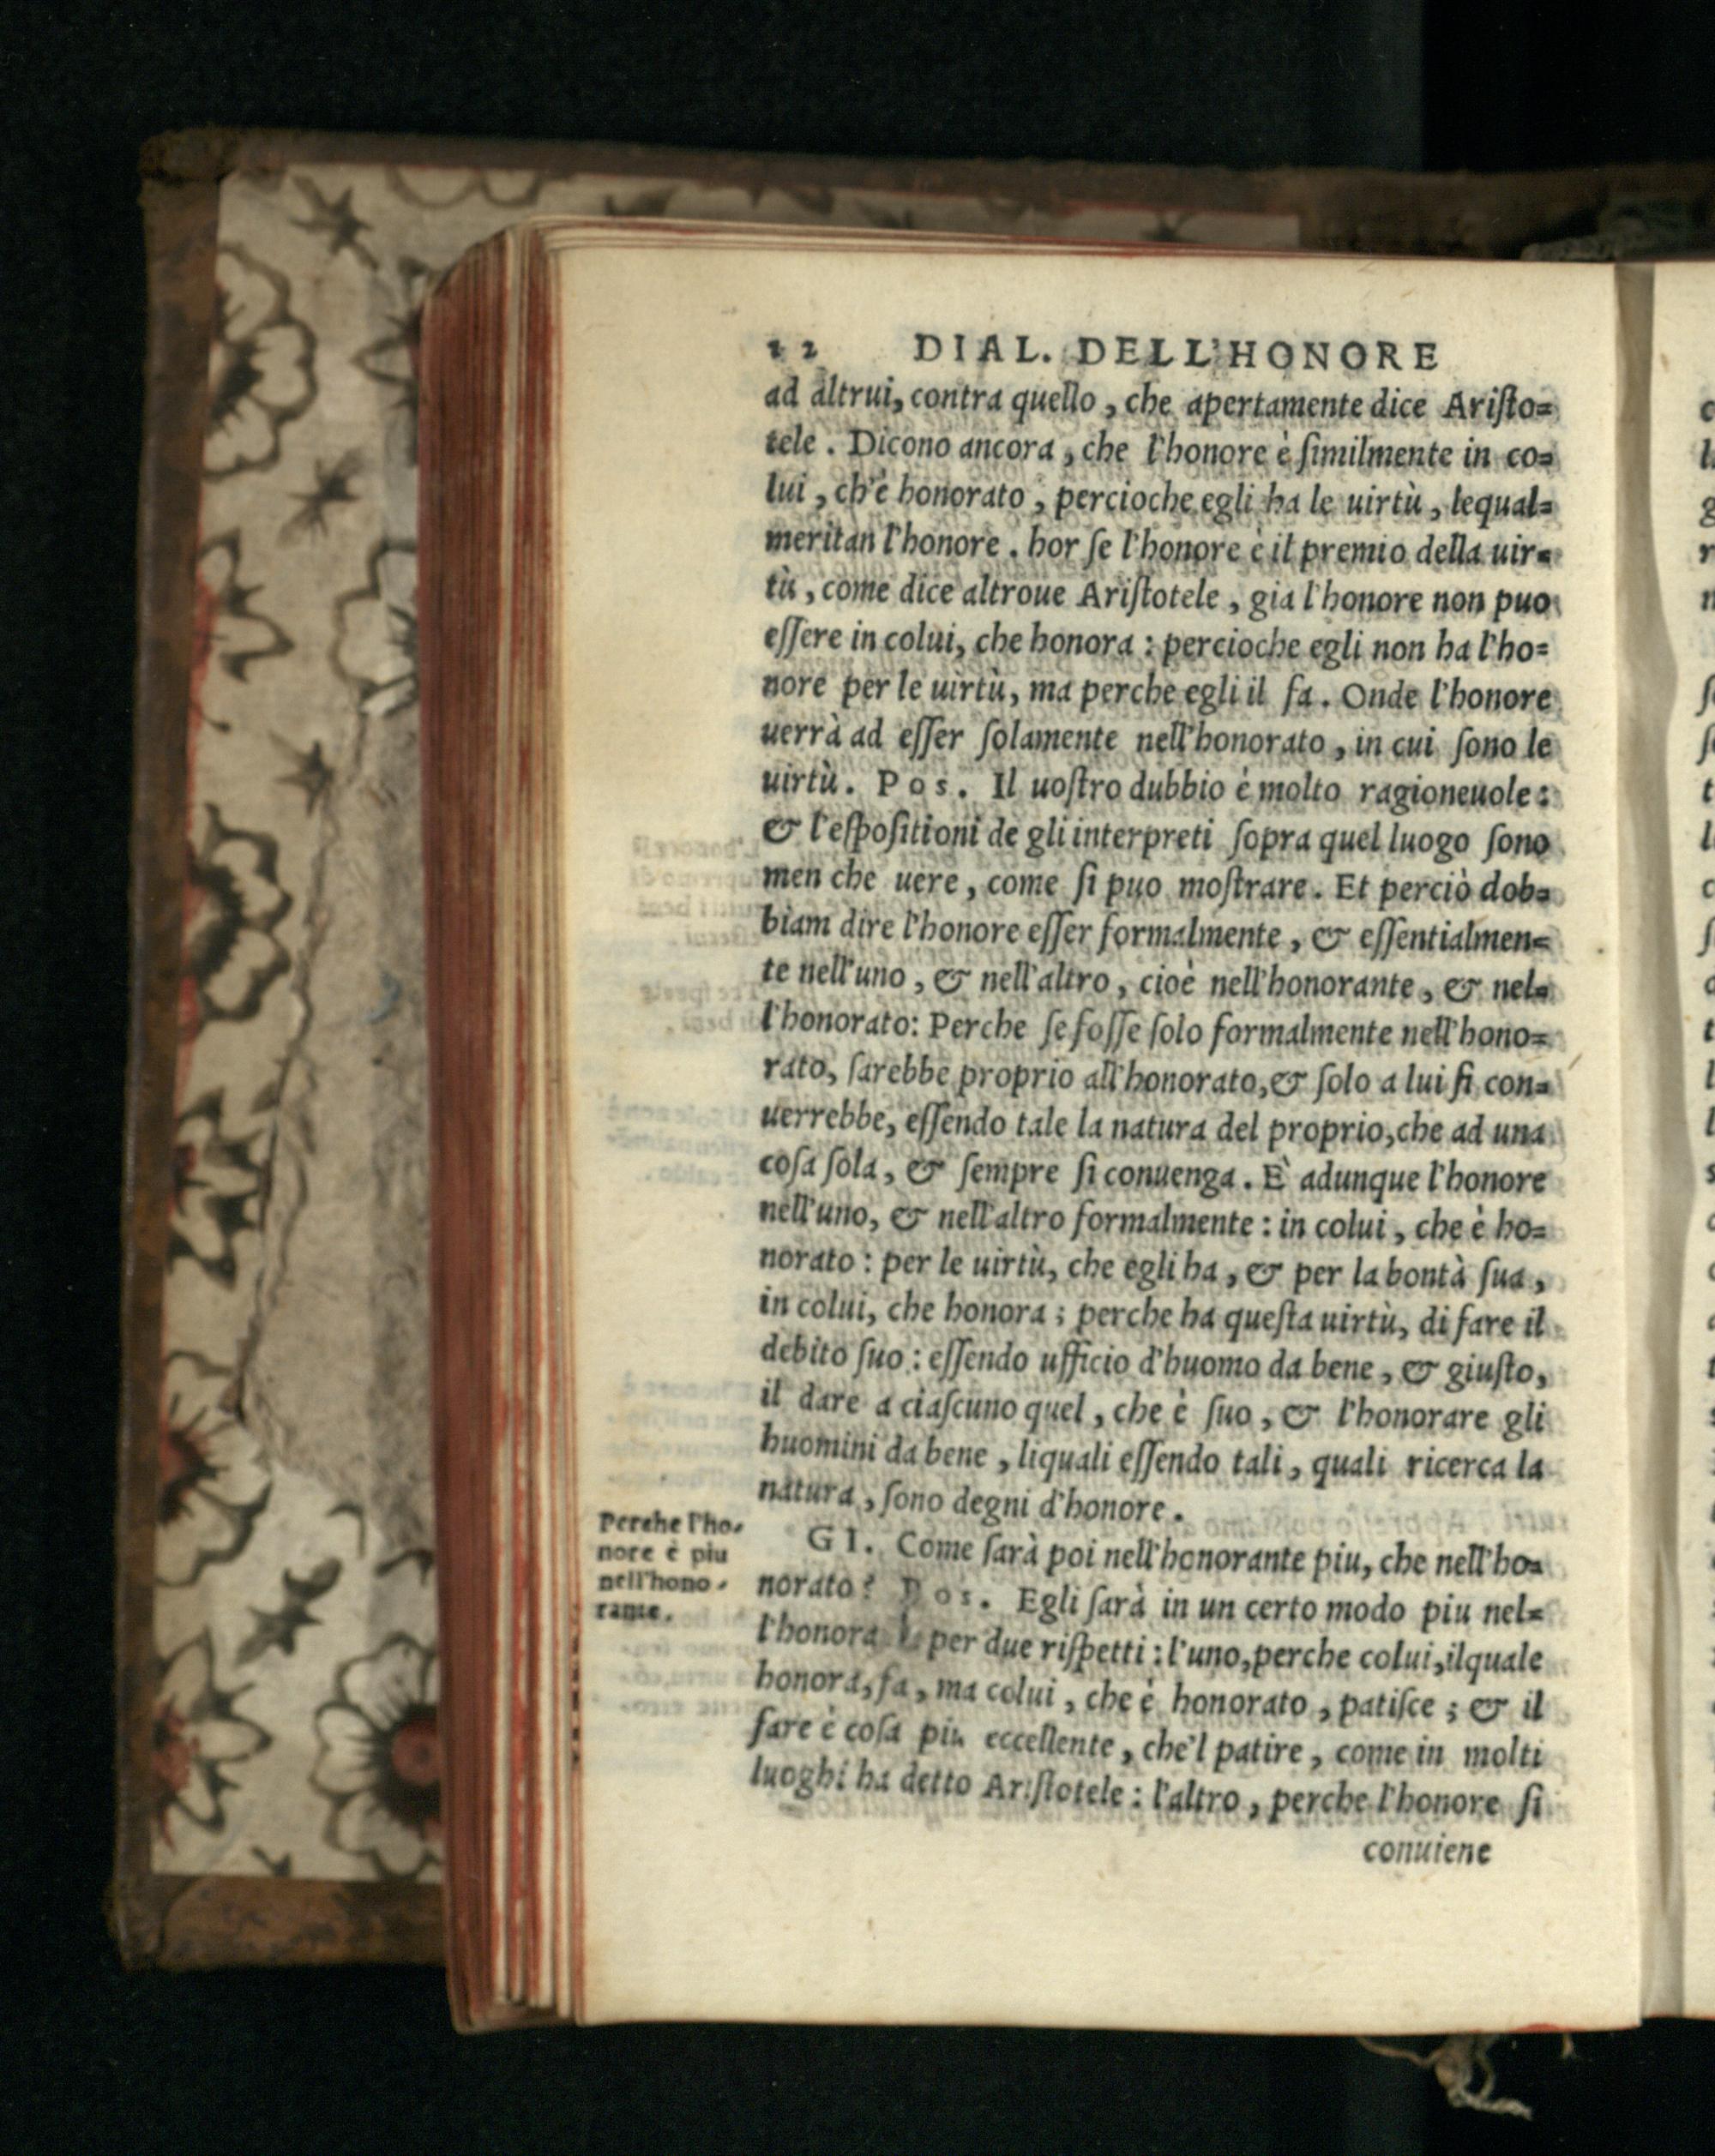 12 DIAL. DELL'HONORE
ad altrui, contra quello, che apertamente dice Ariſto=
tele. Dicono ancora, che l'honore è ſimilmente in co=
lui, ch'è honorato, percioche egli ha le uirtù, lequal=
meritan l'honore. hor ſe l'honore è il premio della uir=
tù, come dice altroue Ariſtotele, gia l'honore non puo
eſſere in colui, che honora: percioche egli non ha l'ho=
nore per le uirtù, ma perche egli il fa. Onde l'honore
uerrà ad eſſer ſolamente nell'honorato, in cui ſono le
uirtù. Pos. Il uoſtro dubbio è molto ragioneuole:
& l'eſpoſitioni de gli interpreti ſopra quel luogo ſono
men che uere, come ſi puo moſtrare. Et perciò dob=
biam dire l'honore eſſer formalmente, & eſſentialmen=
te nell'uno, & nell'altro, cioè nell'honorante, & nel=
l'honorato: Perche ſe foſſe ſolo formalmente nell'hono=
rato, ſarebbe proprio all'honorato, & ſolo a lui ſi con=
uerrebbe, eſſendo tale la natura del proprio, che ad una
coſa ſola, & ſempre ſi conuenga. È adunque l'honore
nell'uno, & nell'altro formalmente: in colui, che è ho=
norato: per le uirtù, che egli ha, & per la bontà ſua,
in colui, che honora; perche ha queſta uirtù, di fare il
debito ſuo: eſſendo ufficio d'huomo da bene, & giuſto,
il dare a ciaſcuno quel, che è ſuo, & l'honorare gli
huomini da bene, liquali eſſendo tali, quali ricerca la
natura, ſono degni d'honore.
Perche l'ho-
nore è piu
nell'hono-
rante.
GI. Come ſarà poi nell'honorante piu, che nell'ho=
norato? Pos. Egli ſarà in un certo modo piu nel=
per due riſpetti: l'uno, perche colui, ilquale
honora, fa, ma colui, che è honorato, patiſce; & il
fare è coſa piu eccellente, che'l patire, come in molti
luoghi ha detto Ariſtotele: l'altro, perche l'honore ſi
conuiene